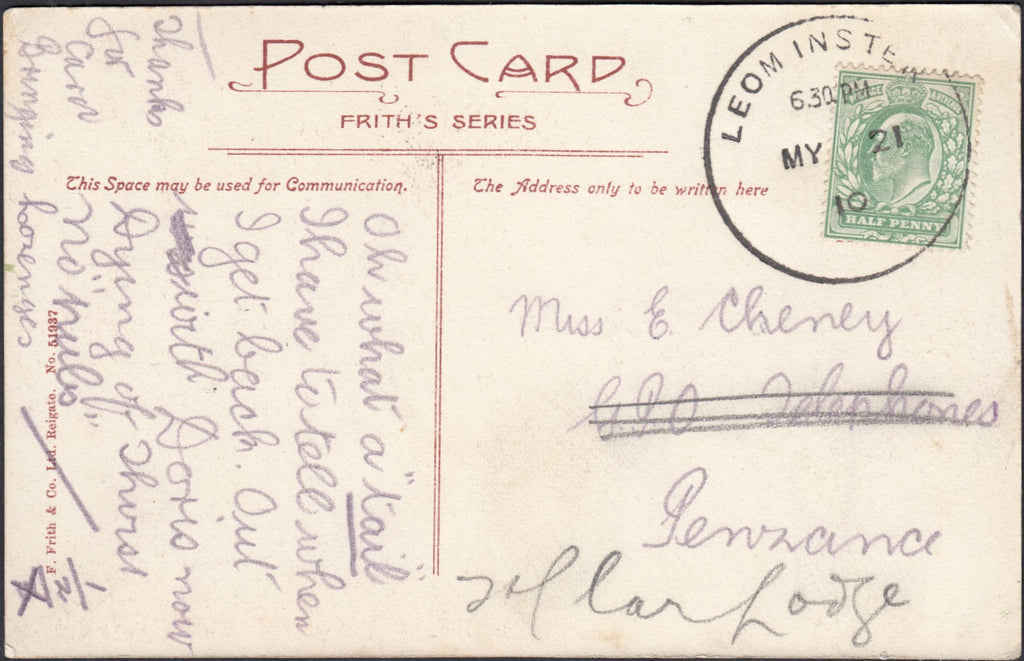 POST CARD
FRITH'S SERIES
This Space may be used for Communication.
The Address only to be written here
LEOMINSTER
6.30 PM
MY 21
10
HALF PENNY
Miss E Cheney
G.P.O Telephones
Penzance
Lodge
Oh what a "tail"
I have to tell when
I get back. Out
with Doris now
Dying of thirst
no
Thanks
for
card
Bringing lozenges
1/2
X
F. Frith & Co. Ltd. Reigate. No. 51937